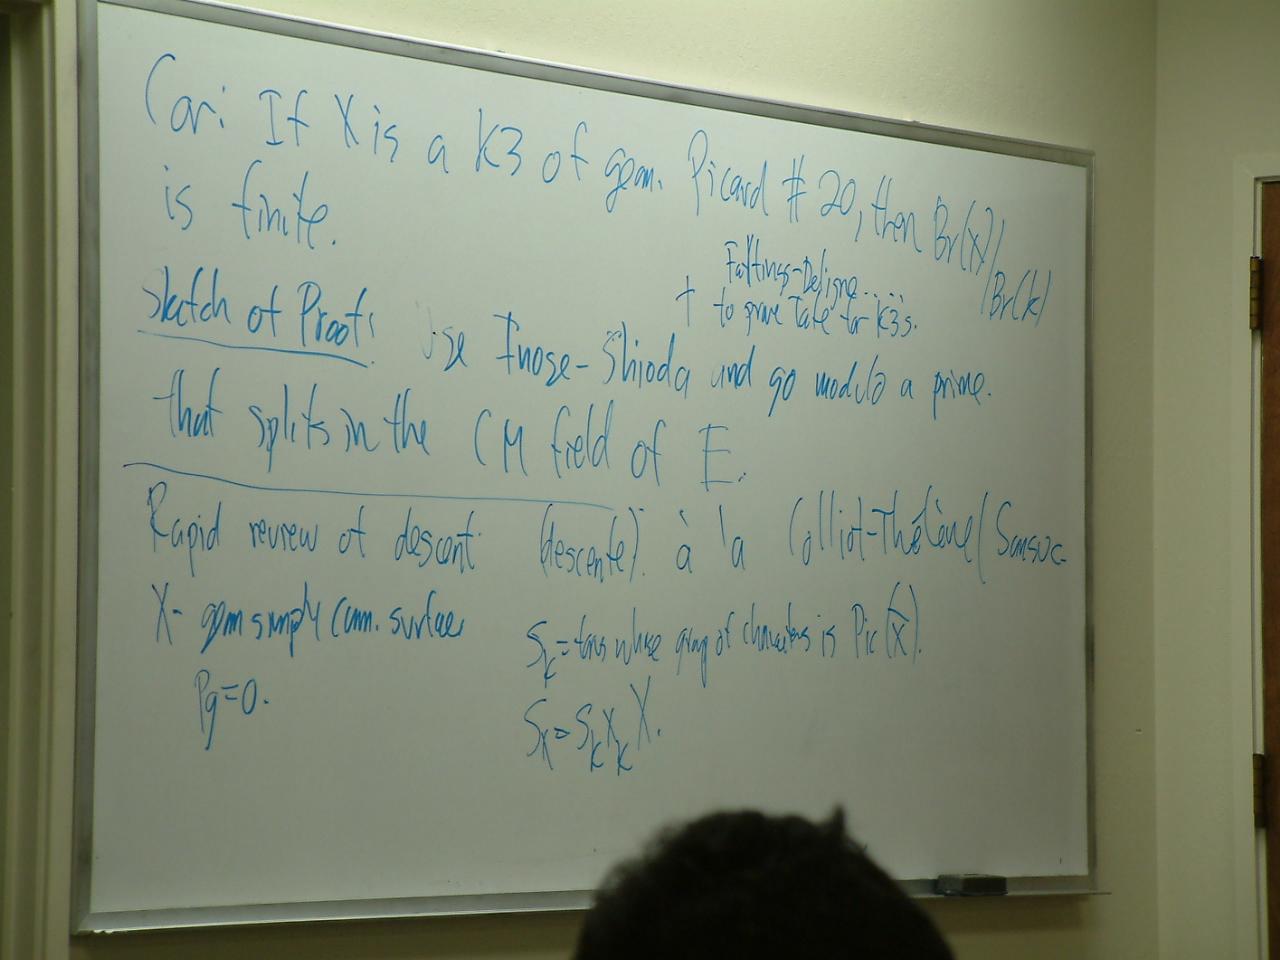 Cor: If X is a K3 of geom. Picard # 20, then Br(X)/Br(k)
is finite.
+ Faltings-Deligne....
to prove Tate for K3s.
Sketch of Proof: Use Inose-Shioda and go modulo a prime.
that splits in the CM field of E.
Rapid review of descent (descente). à la Colliot-Thélène/Sansuc
X - geom simply conn. surface
Pg=0.
S_k = torus whose group of characters is Pic(X̄).
S_X = S_k ×_k X.